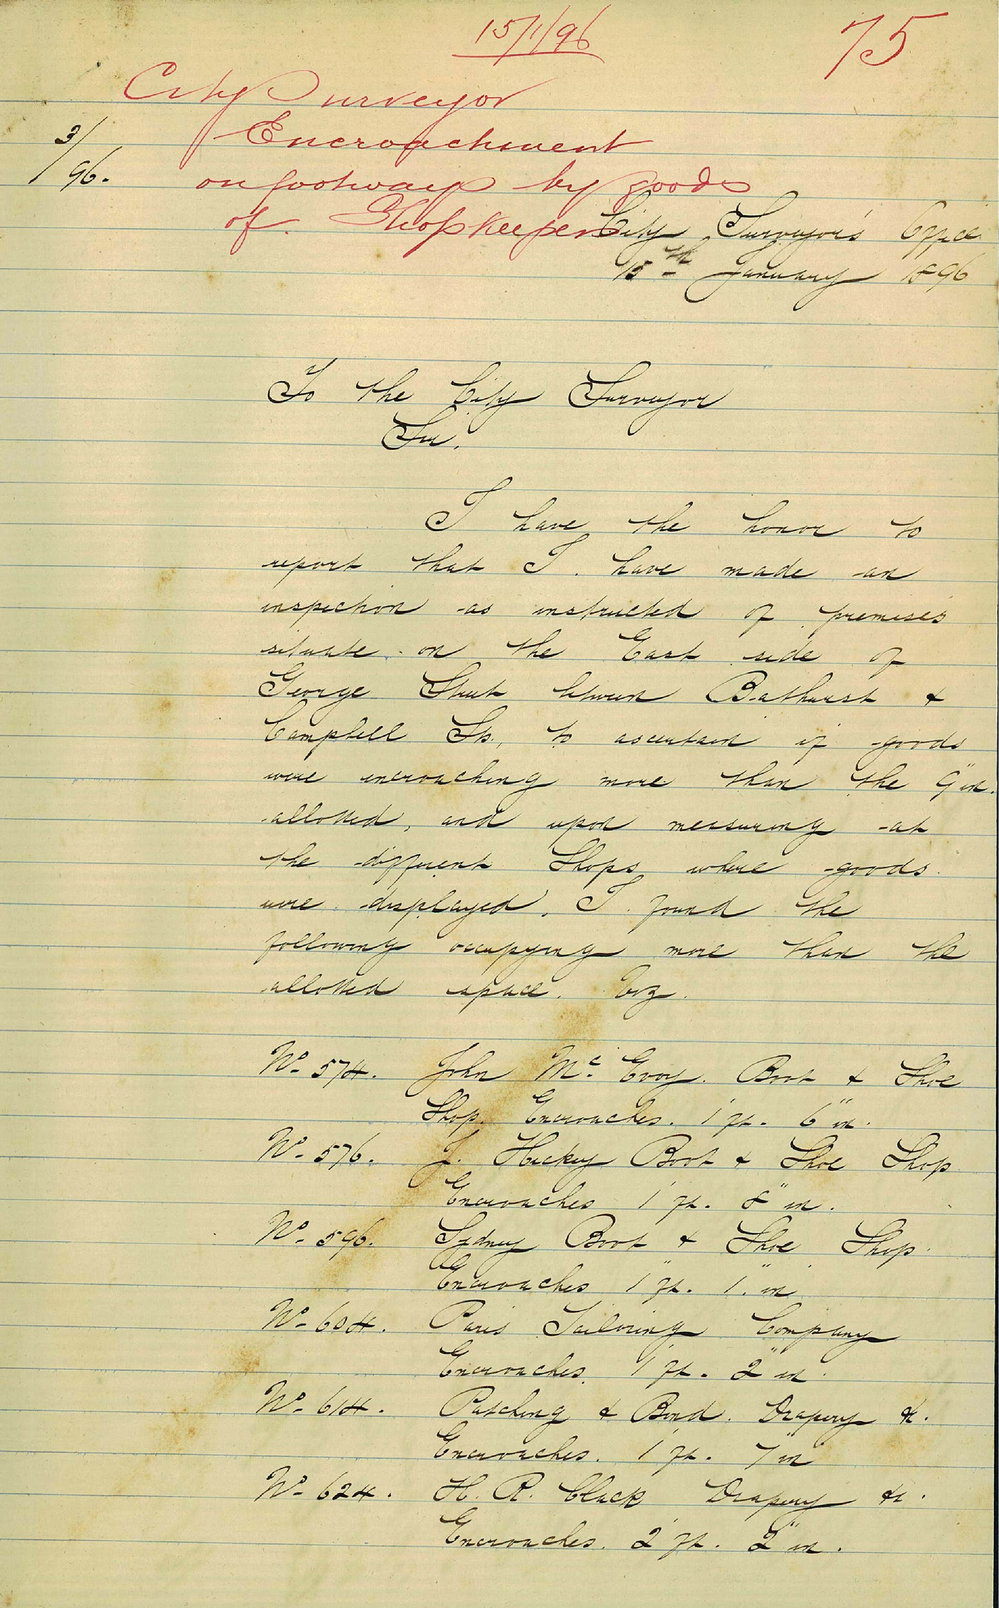 15/1/96
75
City Surveyor
Encroachment
3/96.
on footways by goods
of Shopkeepers
City Surveyor's Office
15th January 1896
To the City Surveyor
Sir.
I have the honor to
report that I have made an
inspection as instructed of premises
situate on the East side of
George Street between Bathurst &
Campbell Sts, to ascertain if goods
were encroaching more than the 9" in.
allotted, and upon measuring at
the different Shops where goods
were displayed, I found the
following occupying more than the
allotted space. Viz.
No. 574. John McEvoy. Boot & Shoe
Shop. Encroaches. 1' ft. 6" in.
No. 576. J. Hickey Boot & Shoe Shop
Encroaches 1' ft. 8" in.
No. 596. Sydney Boot & Shoe Shop.
Encroaches 1' ft. 1" in
No. 604. Paris Tailoring Company
Encroaches. 1' ft. 2" in.
No. 614. Patching & Bond. Drapery &c.
Encroaches. 1' ft. 7" in
No. 624. H. R. Clack Drapery &c.
Encroaches. 2' ft. 2" in.